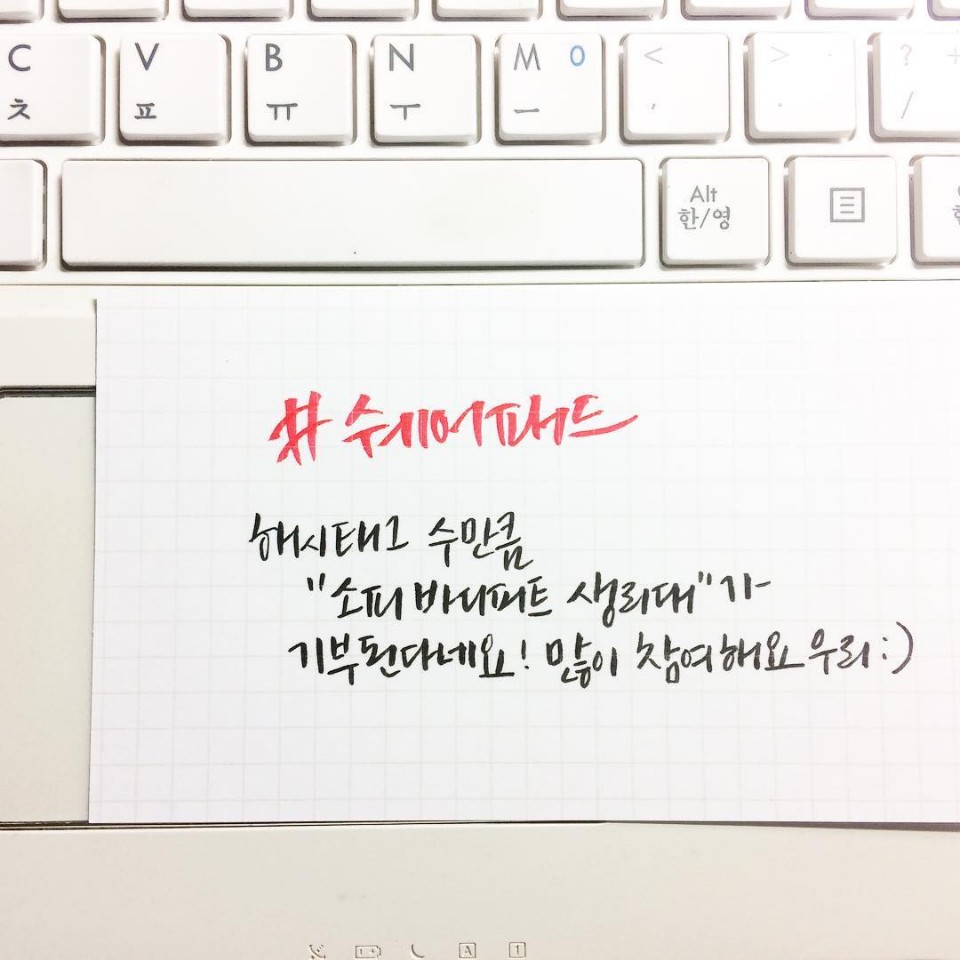 C V B N M 0 < > ? +
ㅊ ㅍ ㅠ ㅜ ㅡ , . /
Alt
한/영
#쉐어패드
해시태그 수만큼
"소피 바디피트 생리대"가
기부된다네요! 많이 참여해요 우리:)
A 1